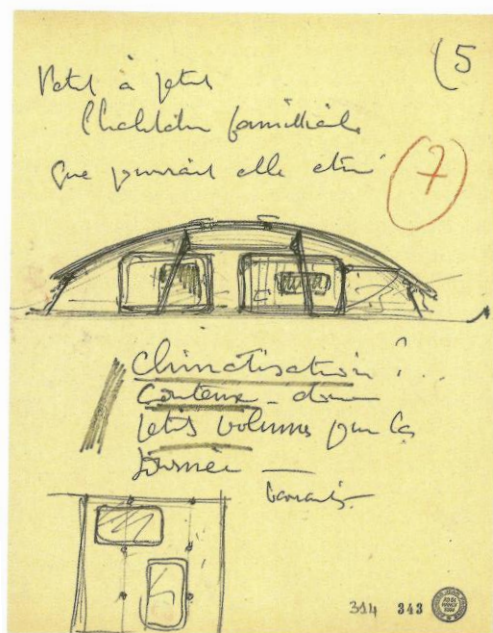 (5
Petit à petit
l'habitation familiale
que pourrait elle être
7
Climatisation ?..
Couteux - donc
petits volumes pour la
Journée —
314 343